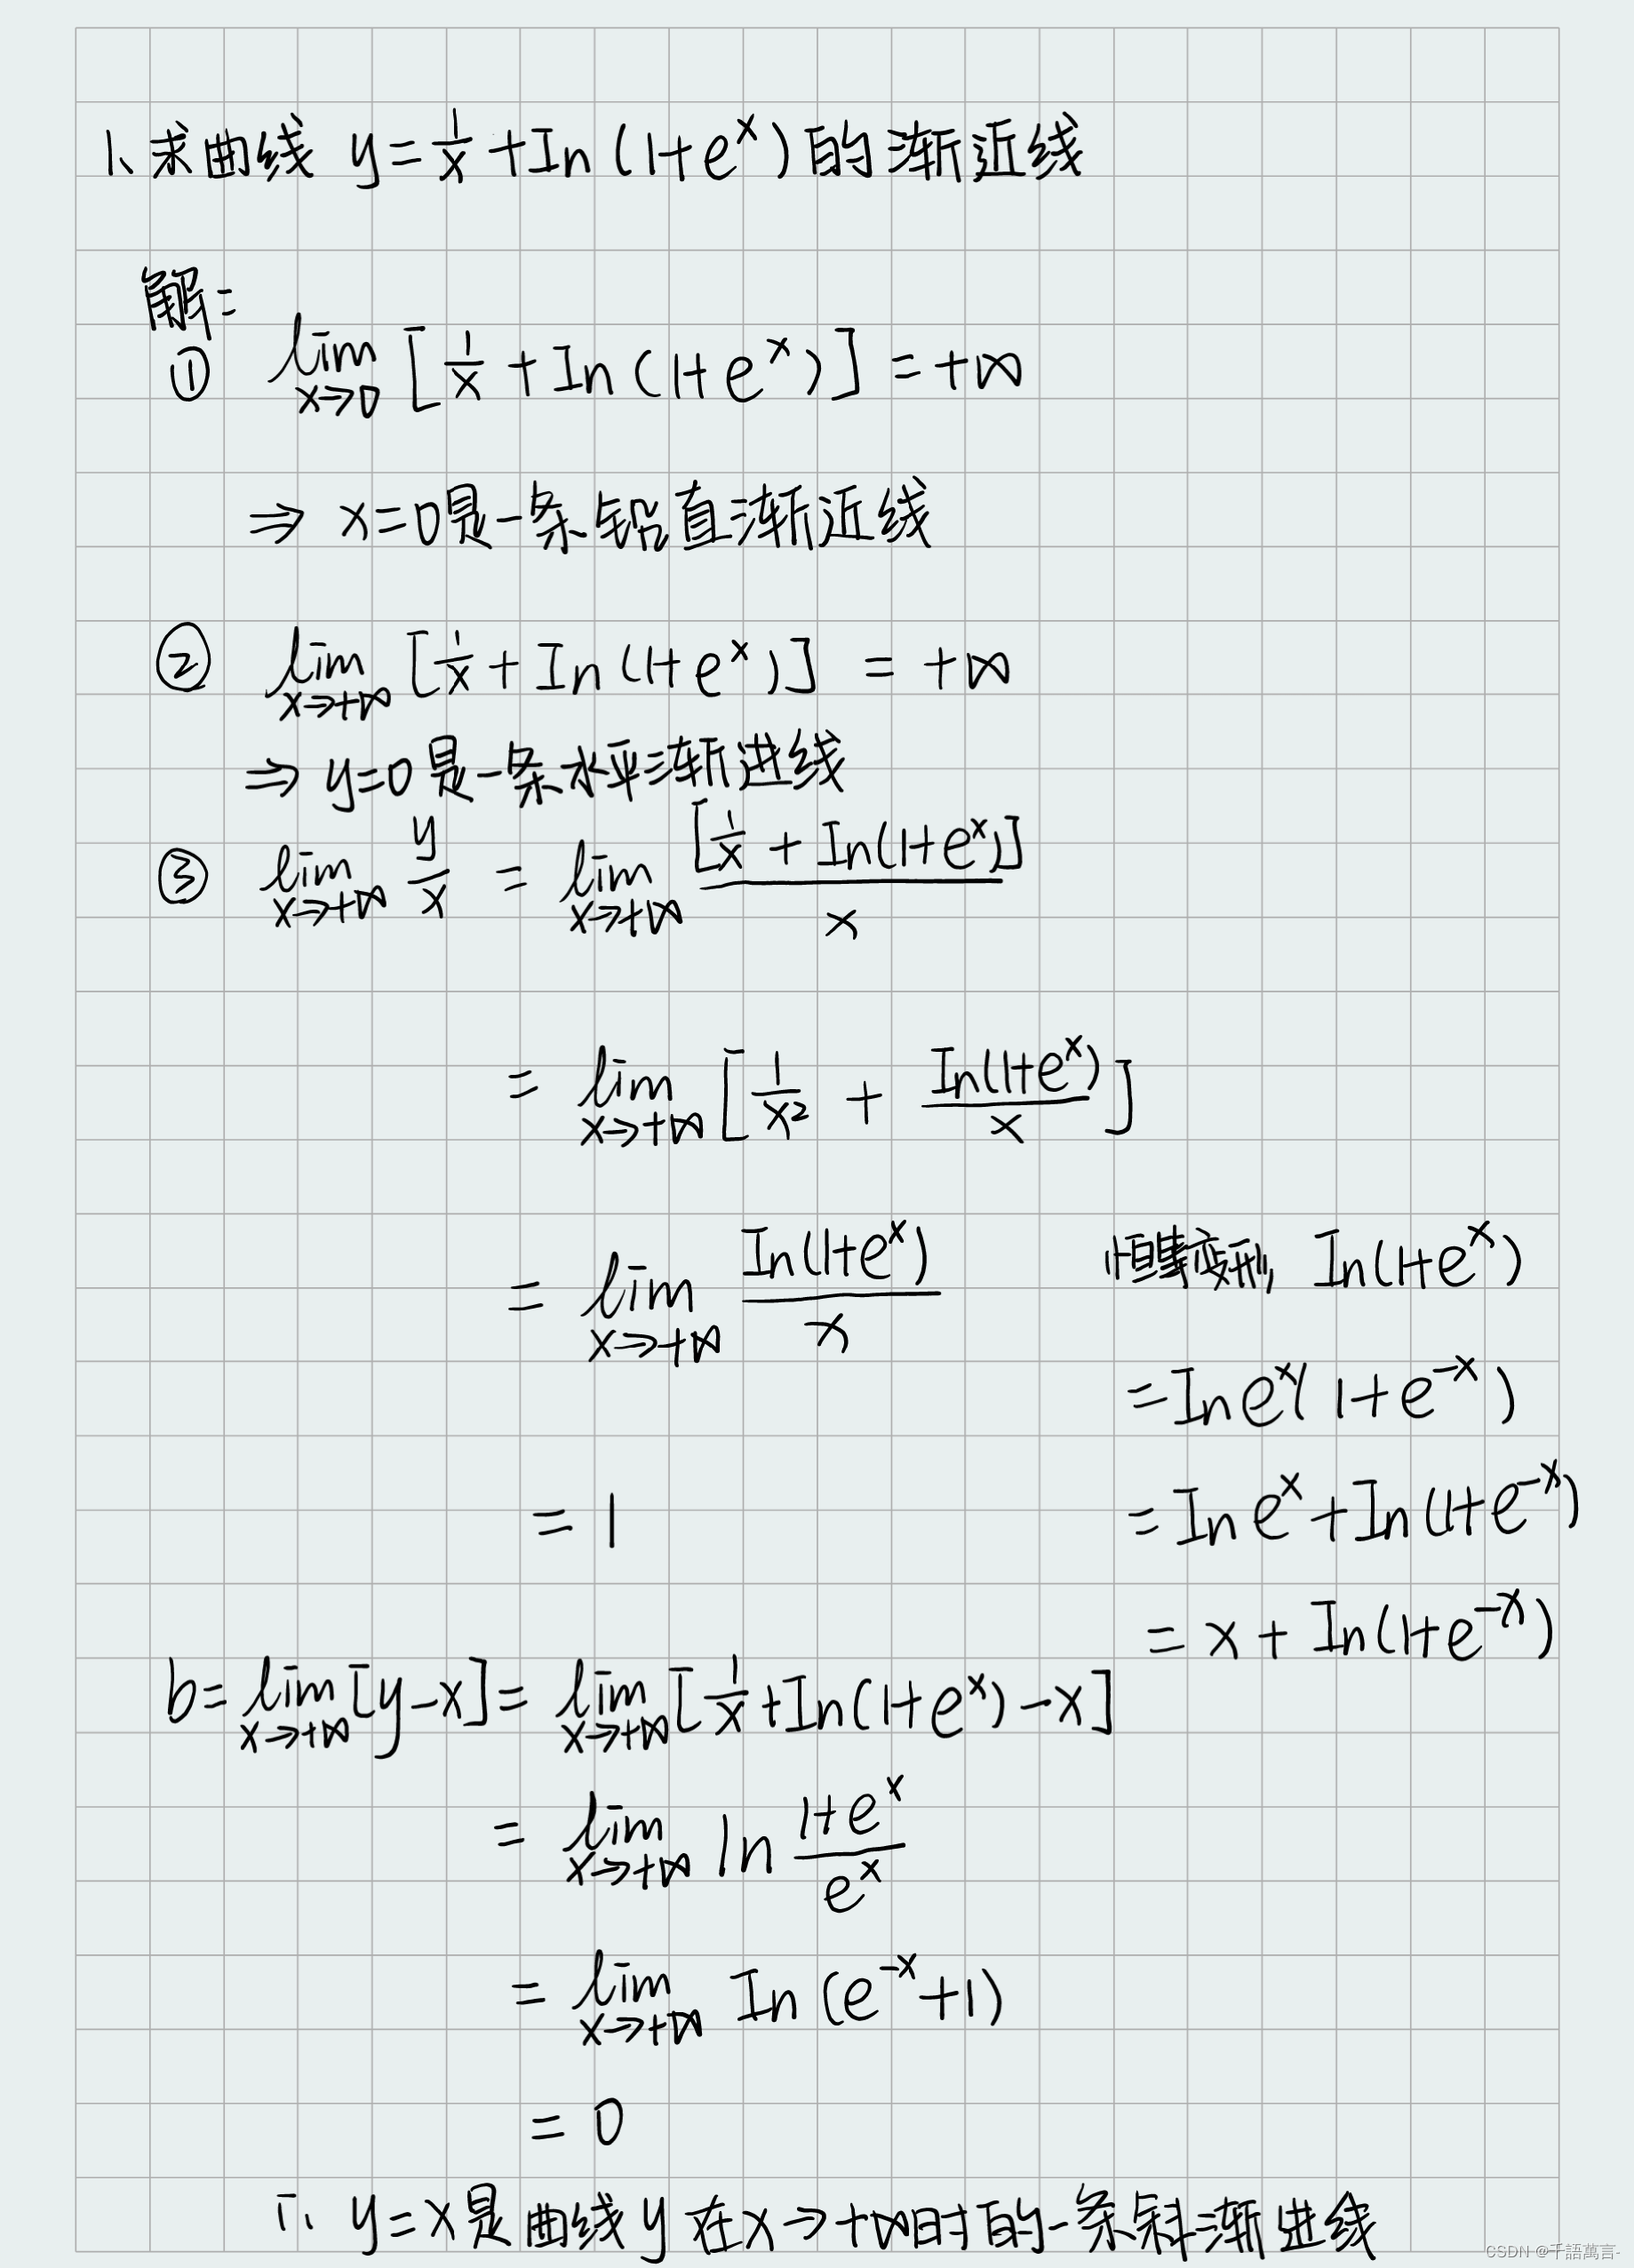 1、求曲线 y=1/x+In(1+e^x)的渐近线
解:
① lim x→0 [1/x+In(1+e^x)]=+∞
⇒ x=0是一条铅直渐近线
② lim x→+∞ [1/x+In(1+e^x)] = +∞
⇒ y=0是一条水平渐进线
③ lim x→+∞ y/x = lim x→+∞ [1/x+In(1+e^x)]/x
= lim x→+∞ [1/x²+In(1+e^x)/x]
= lim x→+∞ In(1+e^x)/x
= 1
恒等变形, In(1+e^x)
=In e^x(1+e^-x)
=In e^x+In(1+e^-x)
=x+In(1+e^-x)
b=lim x→+∞ [y-x]=lim x→+∞ [1/x+In(1+e^x)-x]
= lim x→+∞ ln (1+e^x)/e^x
= lim x→+∞ In(e^-x+1)
= 0
∴ y=x是曲线y在x→+∞时的一条斜渐进线
CSDN @千語萬言-